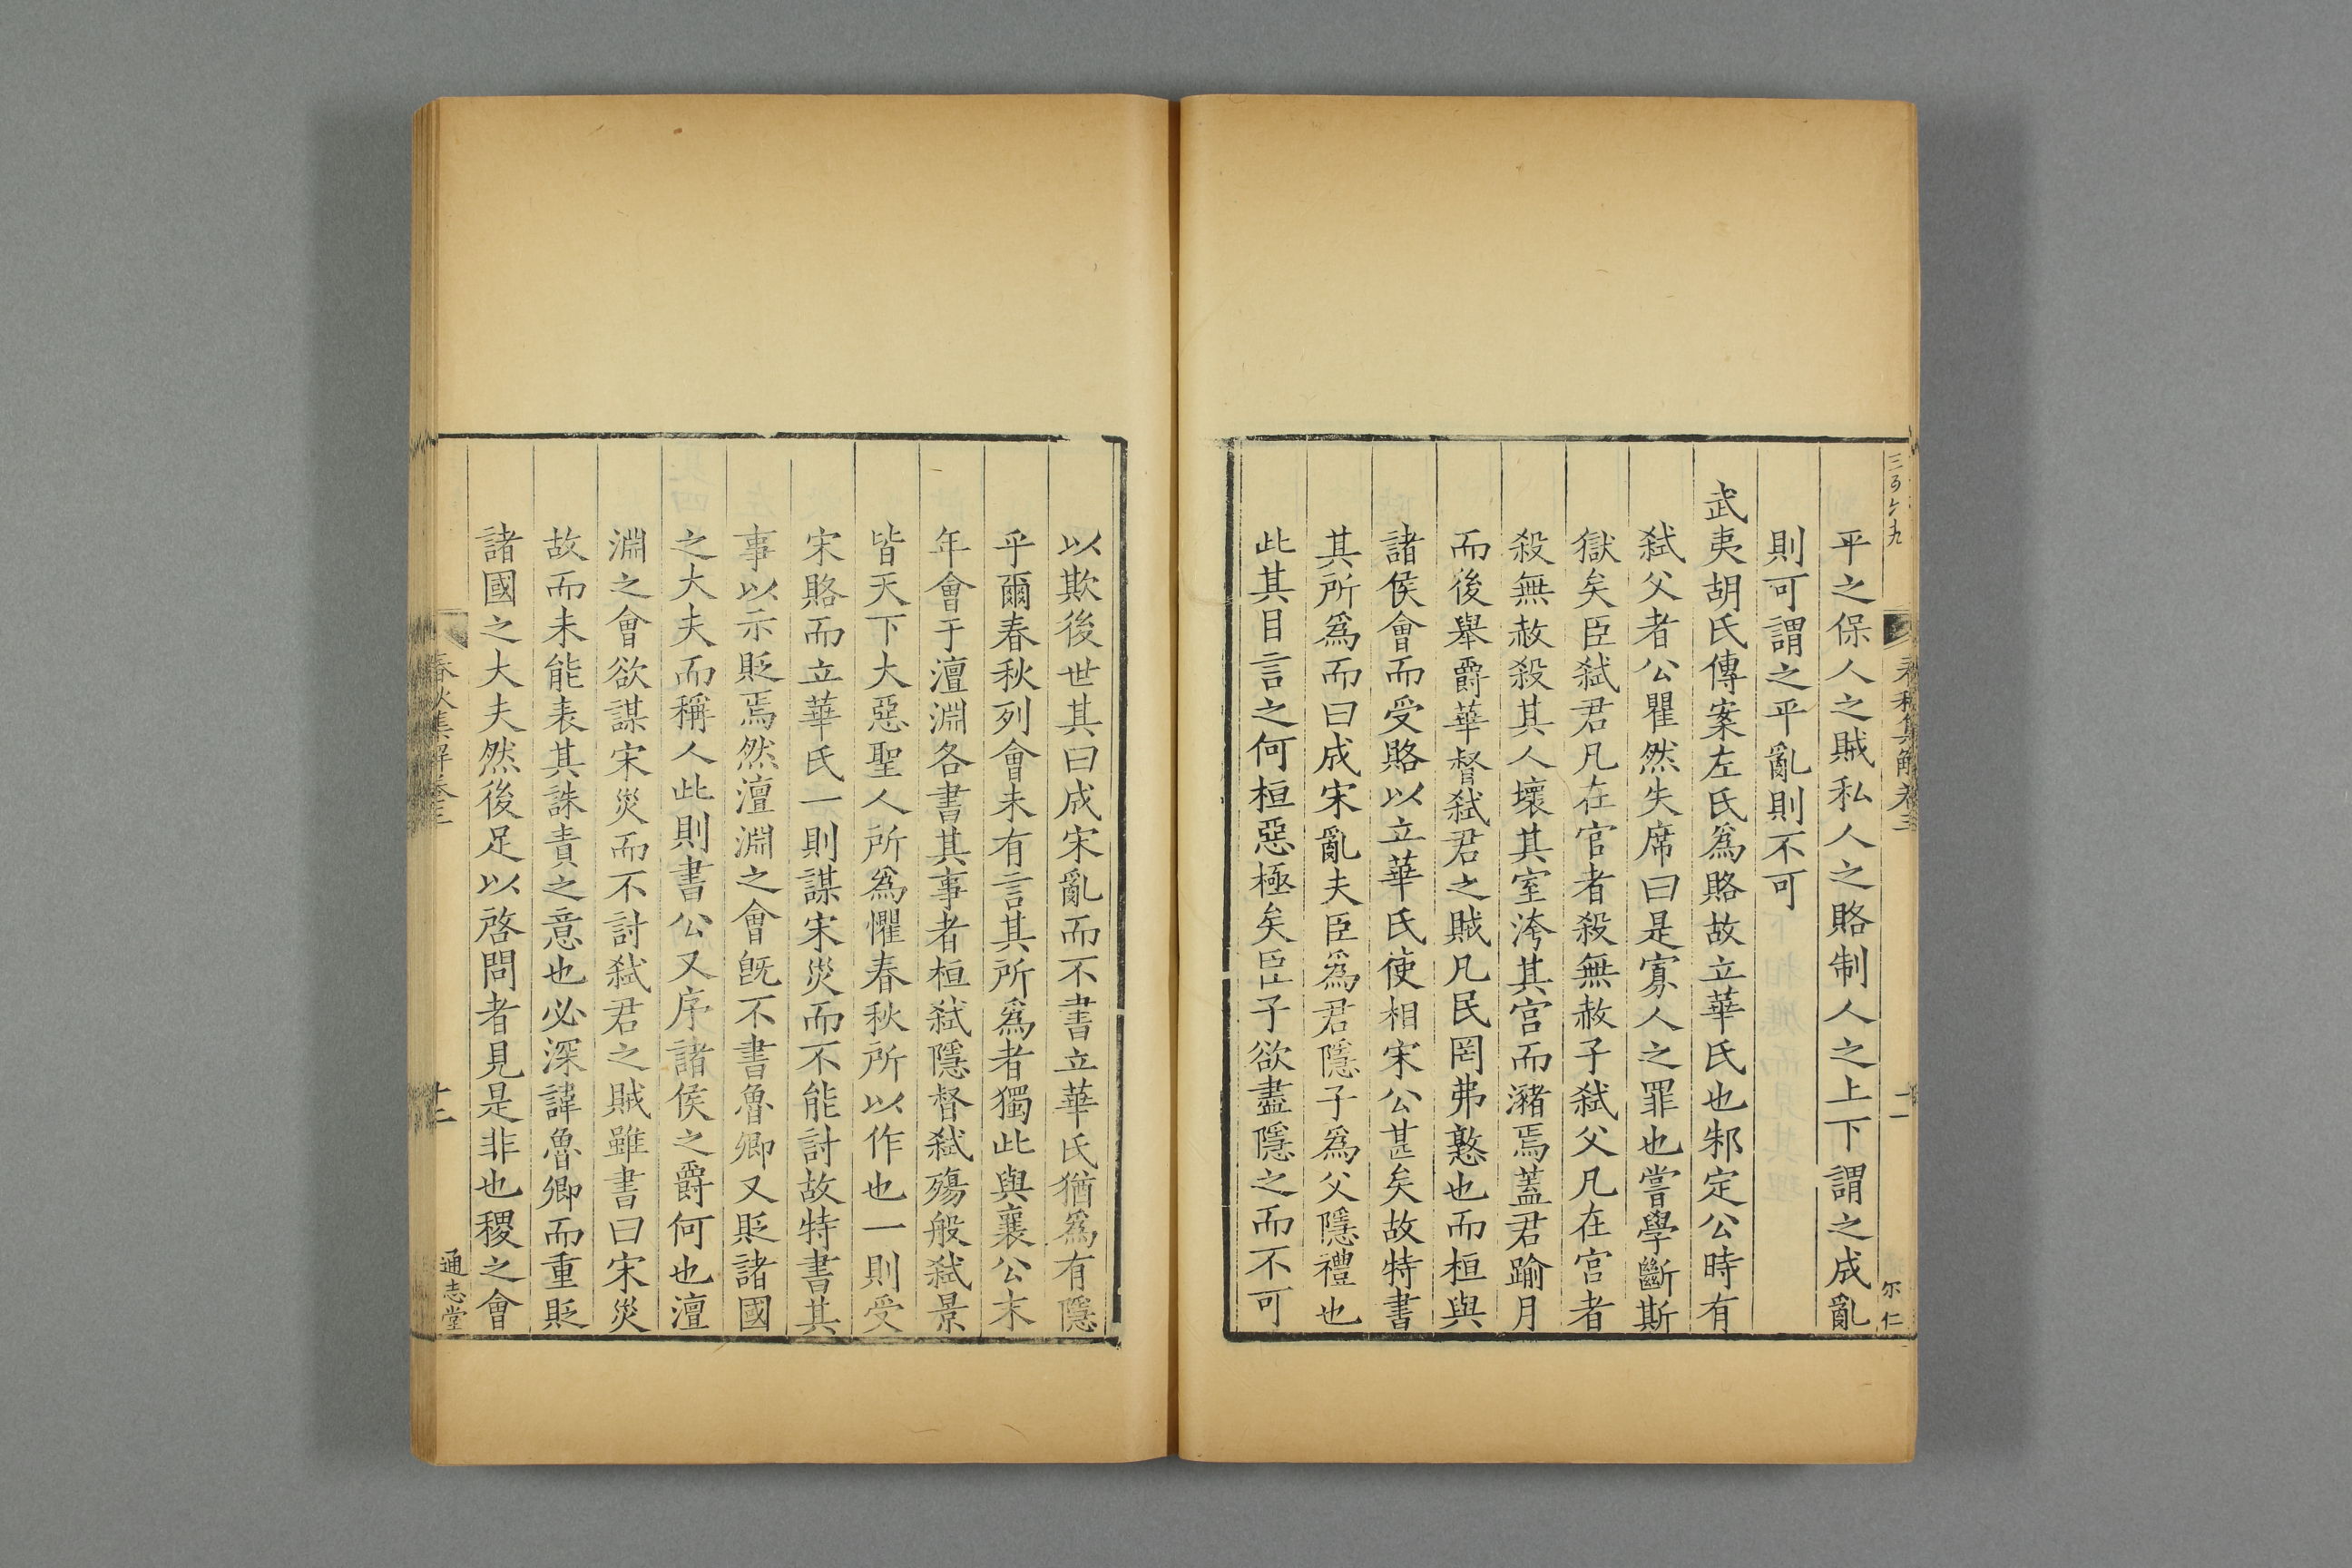 三百六九
春秋集解卷三
十一
尔仁
平之保人之賊私人之賂制人之上下謂之成亂
則可謂之平亂則不可
武夷胡氏傳案左氏爲賂故立華氏也邾定公時有
弑父者公瞿然失席曰是寡人之罪也嘗學斷斯
獄矣臣弑君凡在官者殺無赦子弑父凡在宮者
殺無赦殺其人壞其室洿其宮而瀦焉蓋君踰月
而後舉爵華督弑君之賊凡民罔弗憝也而桓與
諸侯會而受賂以立華氏使相宋公甚矣故特書
其所爲而曰成宋亂夫臣爲君隱子爲父隱禮也
此其目言之何桓惡極矣臣子欲盡隱之而不可
以欺後世其曰成宋亂而不書立華氏猶爲有隱
乎爾春秋列會未有言其所爲者獨此與襄公末
年會于澶淵各書其事者桓弑隱督弑殤般弑景
皆天下大惡聖人所爲懼春秋所以作也一則受
宋賂而立華氏一則謀宋災而不能討故特書其
事以示貶焉然澶淵之會旣不書魯卿又貶諸國
之大夫而稱人此則書公又序諸侯之爵何也澶
淵之會欲謀宋災而不討弑君之賊雖書曰宋災
故而未能表其誅責之意也必深諱魯卿而重貶
諸國之大夫然後足以啓問者見是非也稷之會
春秋集解卷三
十二
通志堂